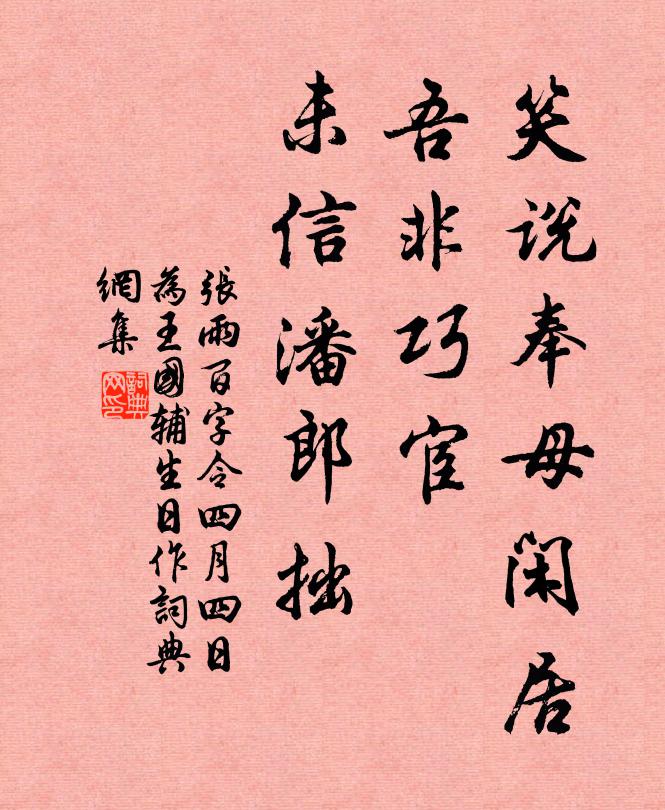 笑说奉母闲居
吾非巧宦
未信潘郎拙
張雨百字令四月四日
為王國辅生日作詞典
網集
詞典
网印